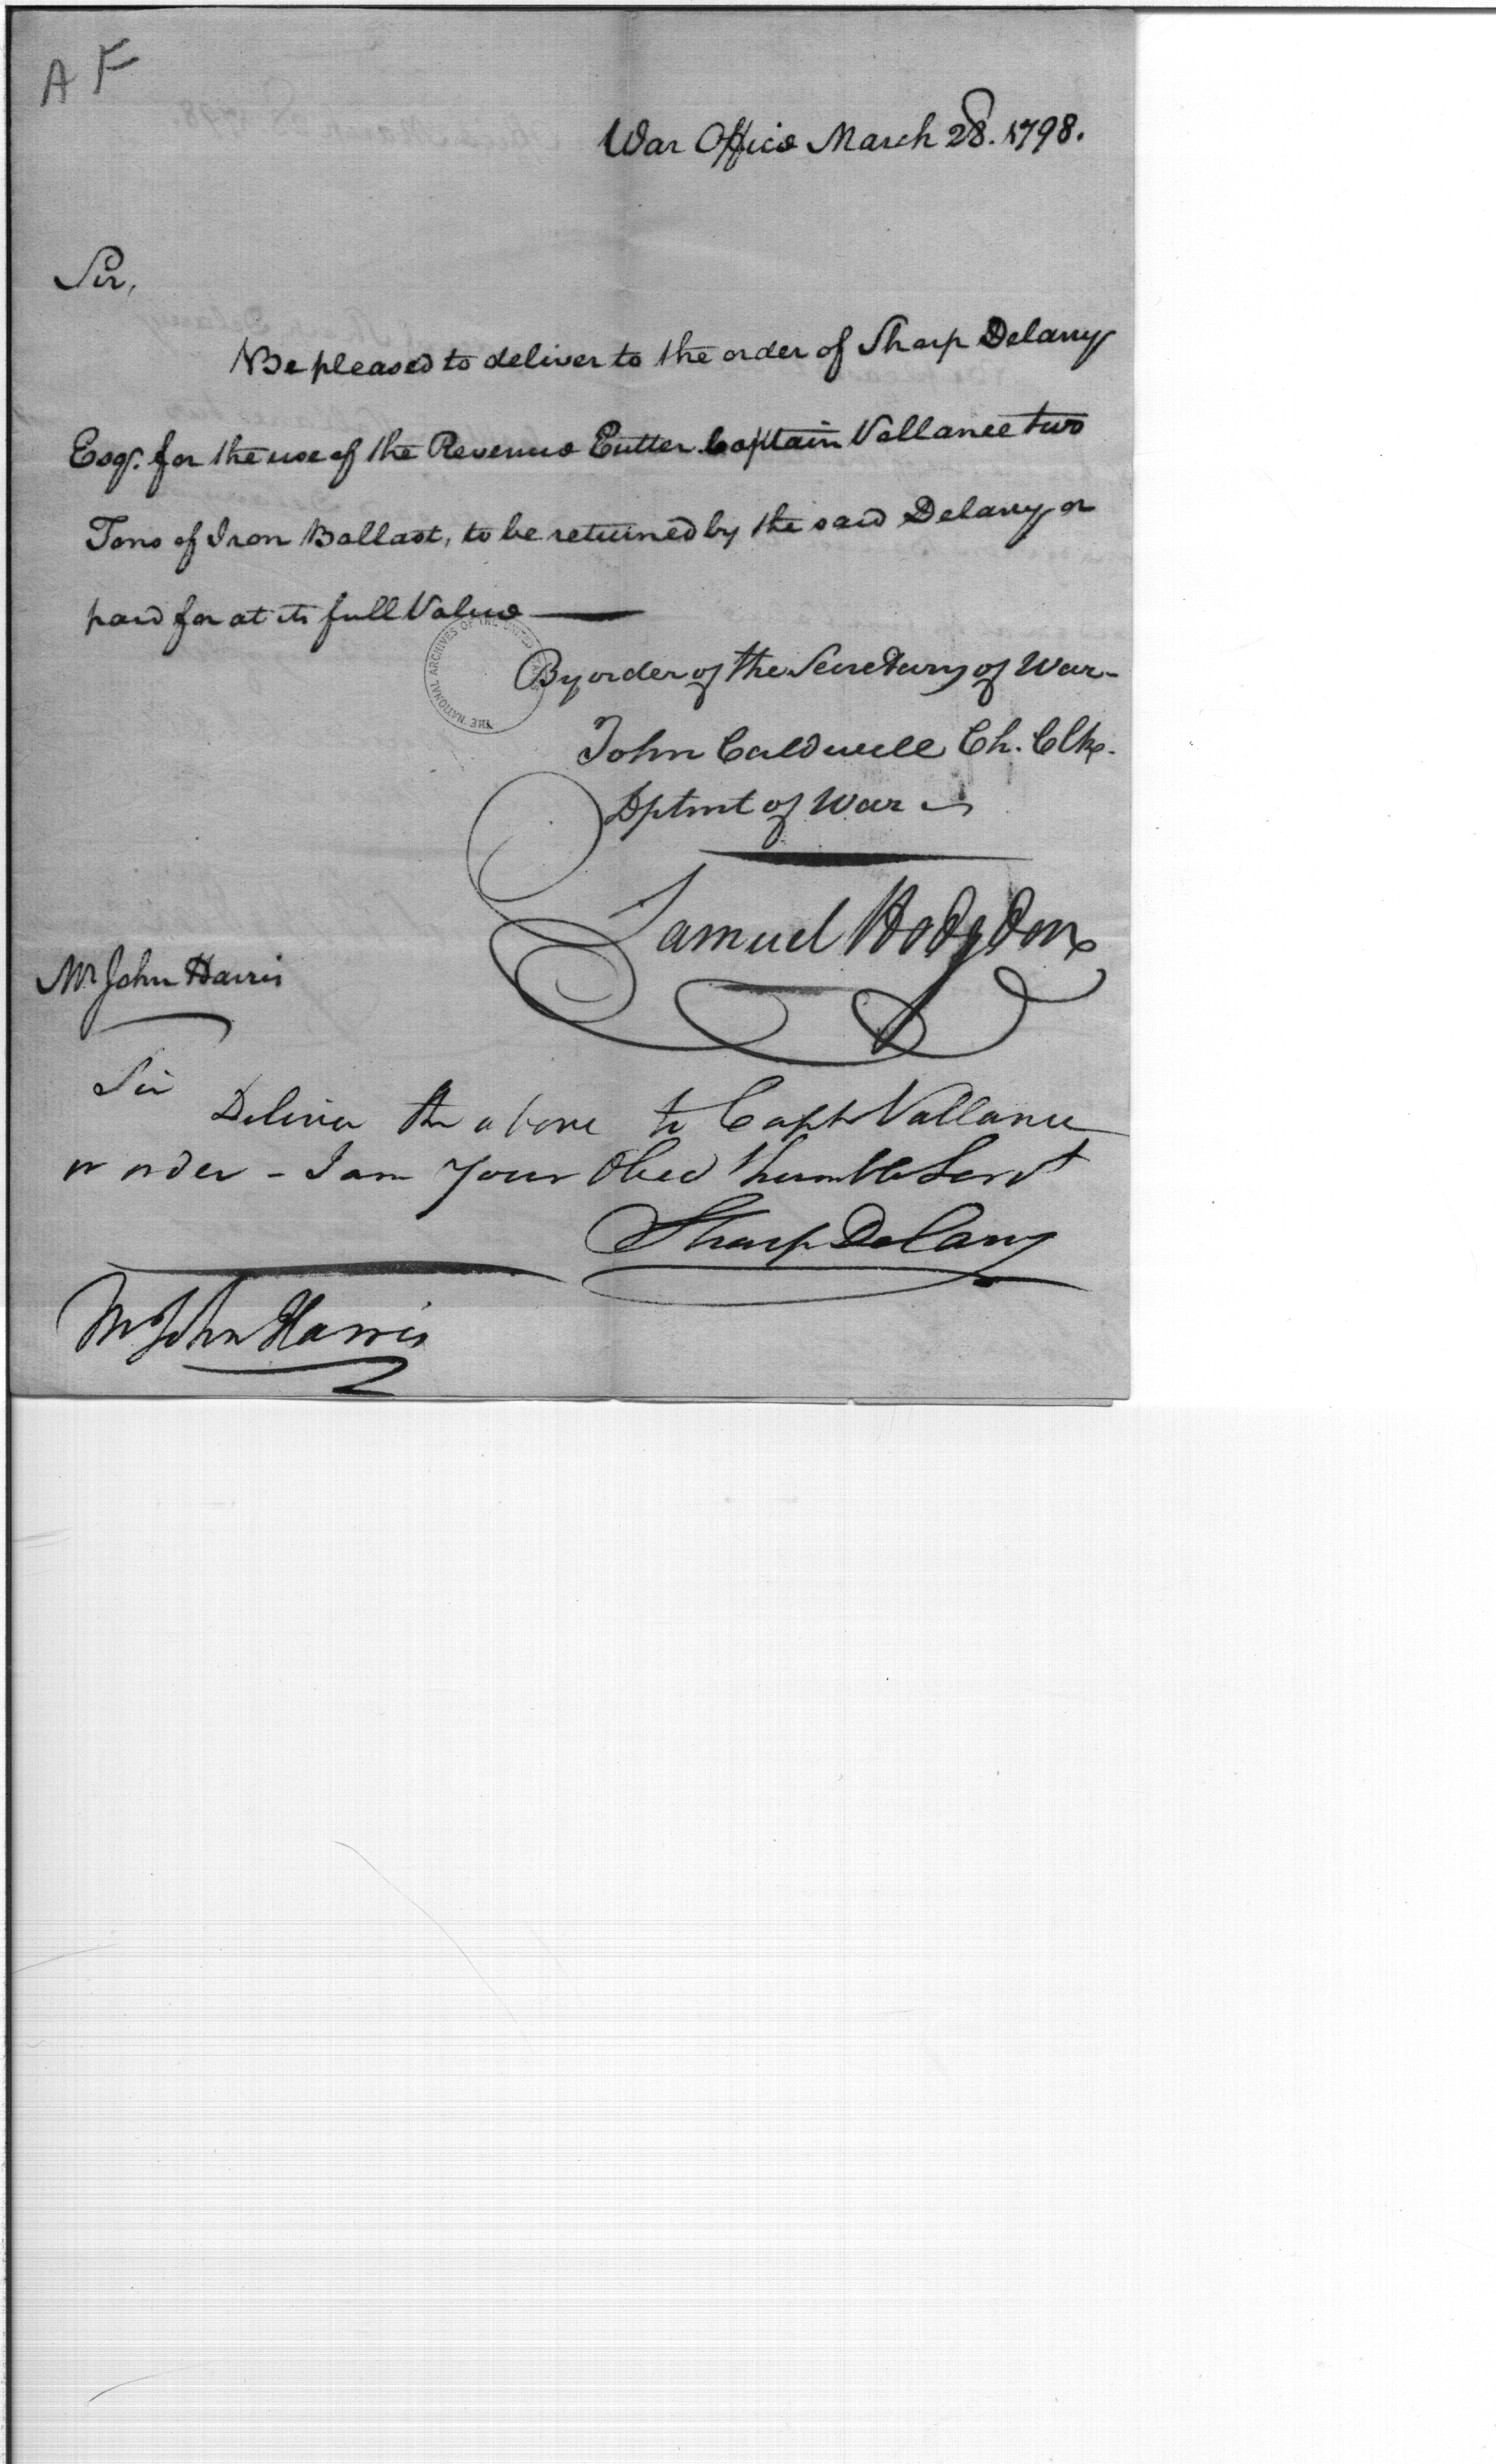 A F
War Office March 28. 1798.
Sir,
Be pleased to deliver to the order of Sharp Delany
Esqr. for the use of the Revenue Cutter Captain Vallance two
Tons of Iron Ballast, to be returned by the said Delany or
paid for at its full Value
THE NATIONAL ARCHIVES OF THE UNITED STATES
By order of the Secretary of War-
John Caldwell Ch. Clk.
Dptmt of War
Samuel Hodgdon
Mr John Harris
Sir
Deliver the above to Capt Vallance
or order - I am Your Obed humble Servt
Sharp Delany
Mr John Harris